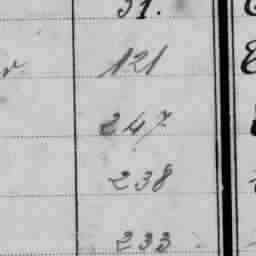 121
247
238
233